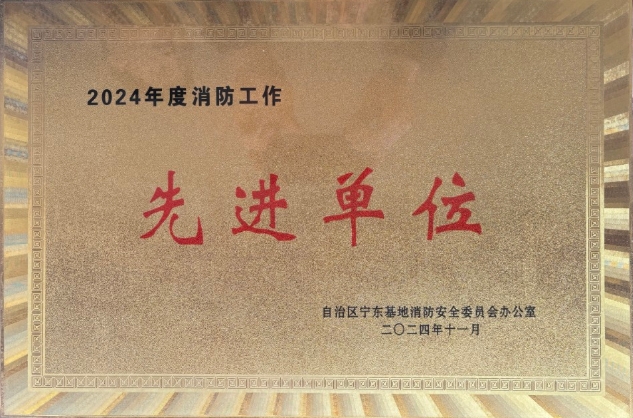 2024年度消防工作
先进单位
自治区宁东基地消防安全委员会办公室
二〇二四年十一月